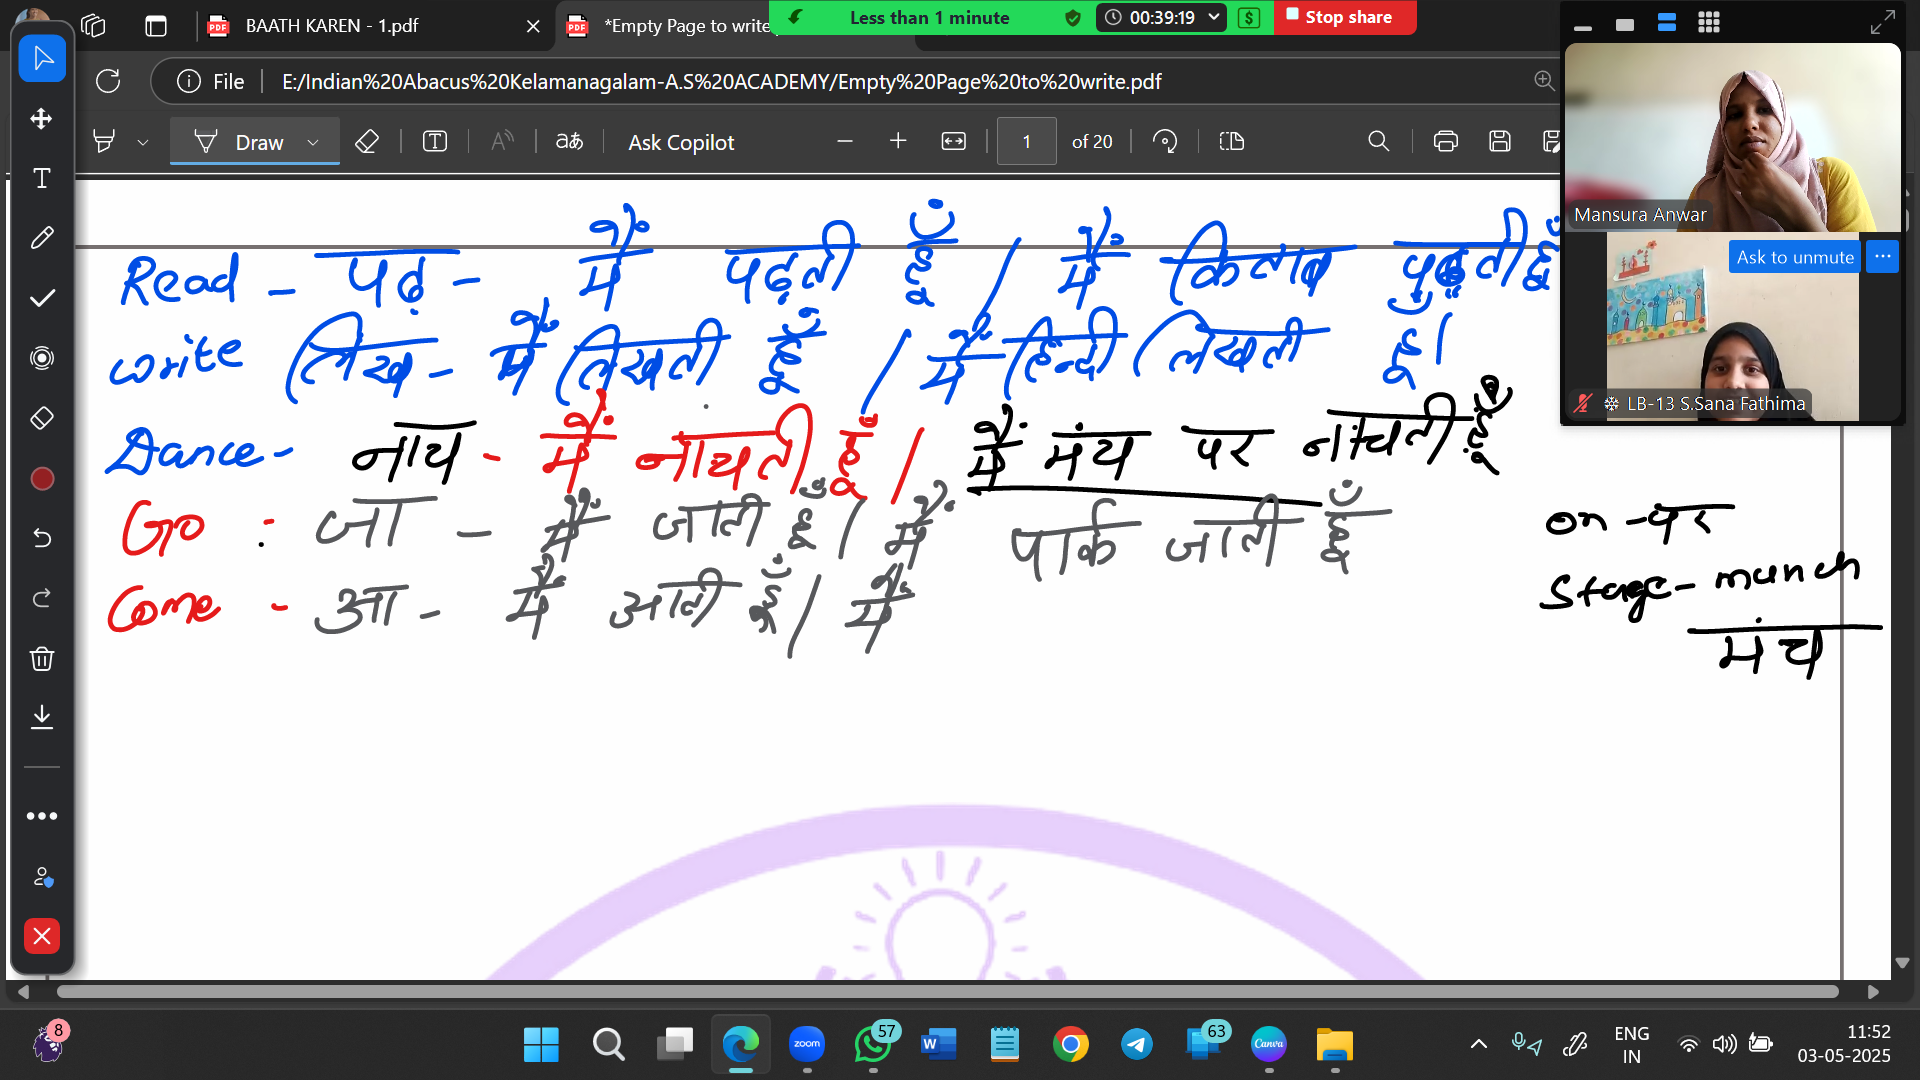 BAATH KAREN - 1.pdf
*Empty Page to write
Less than 1 minute
00:39:19
Stop share
File
E:/Indian%20Abacus%20Kelamanagalam-A.S%20ACADEMY/Empty%20Page%20to%20write.pdf
Draw
Ask Copilot
1 of 20
Mansura Anwar
Ask to unmute
LB-13 S.Sana Fathima
Read - पढ़ - मैं पढ़ती हूँ / मैं किताब पढ़ती हूँ
write लिख - मैं लिखती हूँ / मैं हिन्दी लिखती हूँ।
Dance - नाच - मैं नाचती हूँ / मैं मंच पर नाचती हूँ
Go : जा - मैं जाती हूँ / मैं पार्क जाती हूँ
Come - आ - मैं आती हूँ / मैं
on - पर
Stage - manch
मंच
8
zoom
57
63
Canva
ENG
IN
11:52
03-05-2025